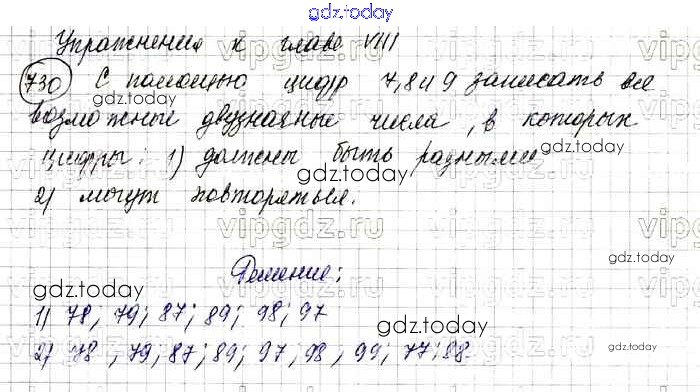 gdz.today
Упражнения к главе VIII
730 С помощью цифр 7,8 и 9 записать все
gdz.today
возможные двузначные числа, в которых
gdz.today
цифры: 1) должны быть разными
gdz.today
2) могут повторяться.
gdz.today
Решение:
gdz.today
1) 78; 79; 87; 89; 98; 97
gdz.today
2) 78, 79; 87; 89; 97, 98, 99; 77; 88
vipgdz.ru